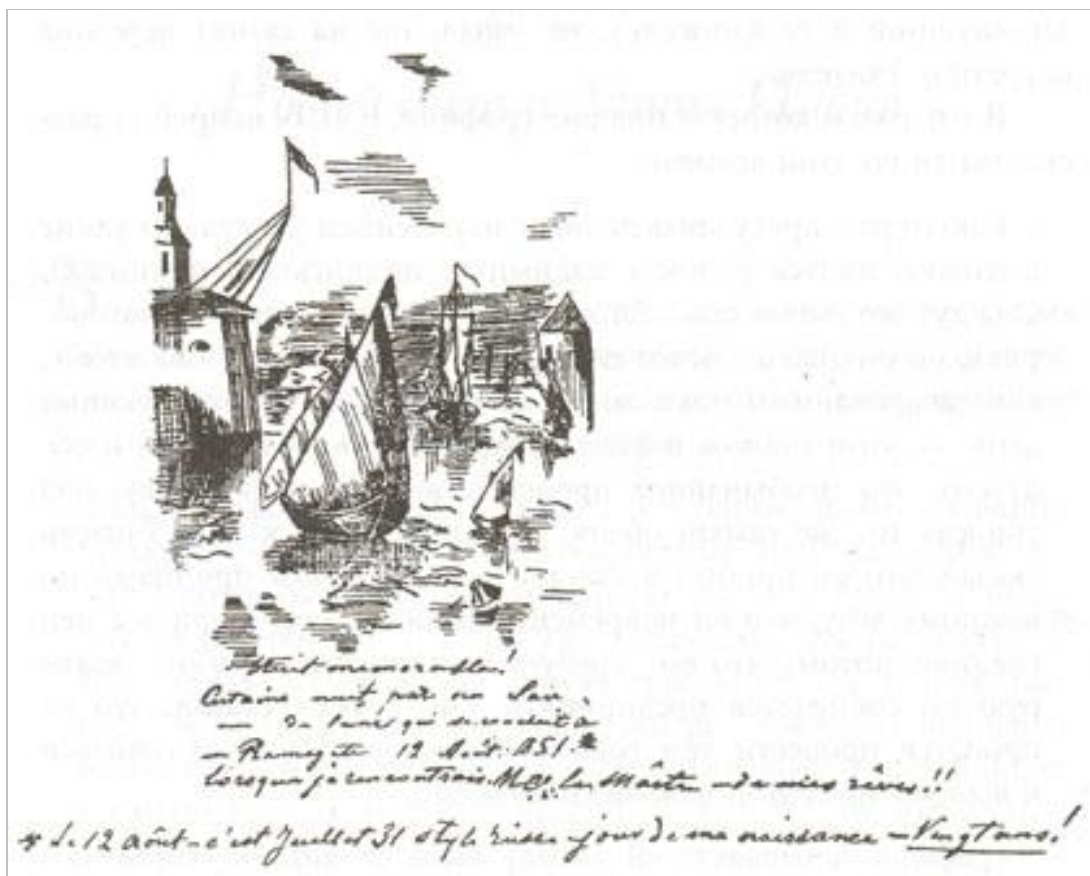 Nuit mémorable!
Certaine nuit par un clair
de lune qui se couchait à
— Ramsgate 12 Août 1851 *
lorsque je rencontrais le Maître — de mes rêves!!
* Le 12 août — c'est Juillet 31 style russe jour de ma naissance — Vingt ans!